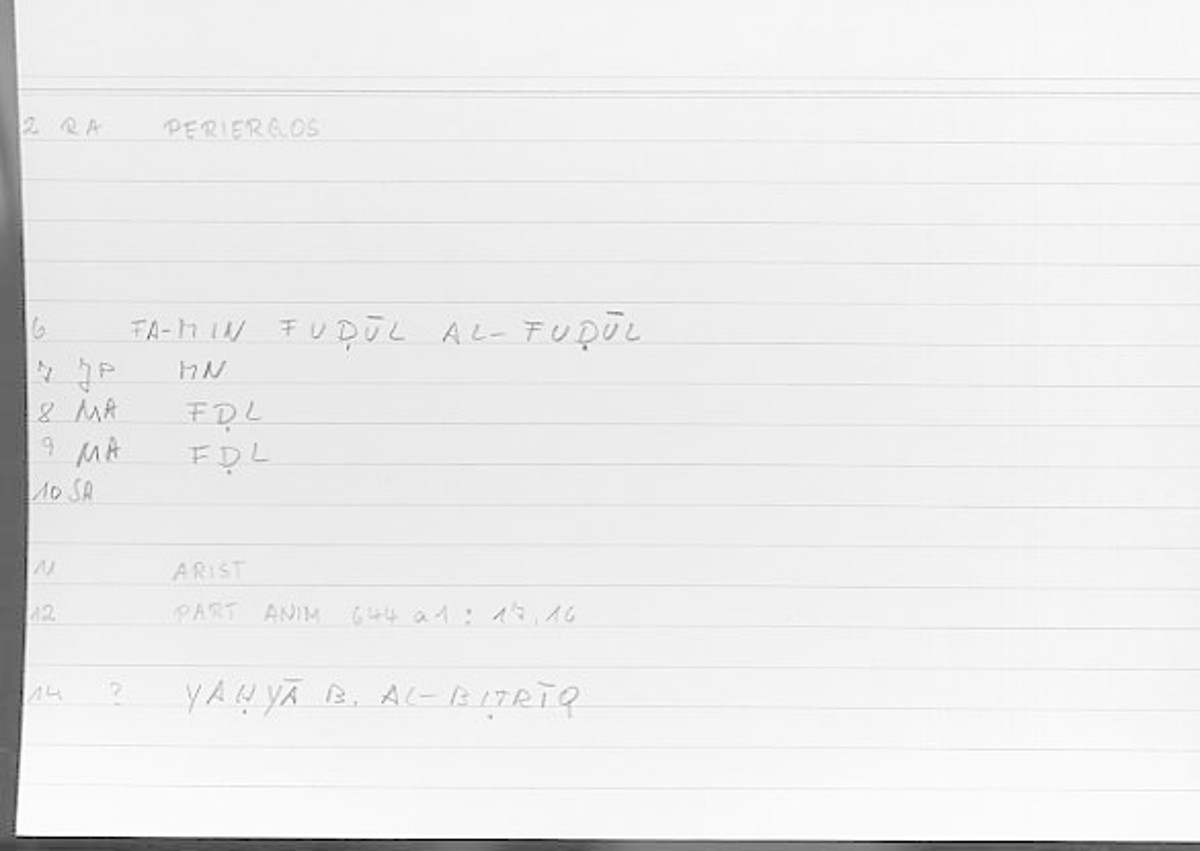 2 RA PERIERGOS
6 FA-MIN FUḌŪL AL-FUḌŪL
7 JP MN
8 MA FḌL
9 MA FḌL
10 SA
11 ARIST
12 PART ANIM 644 a1 : 17,16
14 ? YAḤYĀ B. AL-BIṬRĪQ